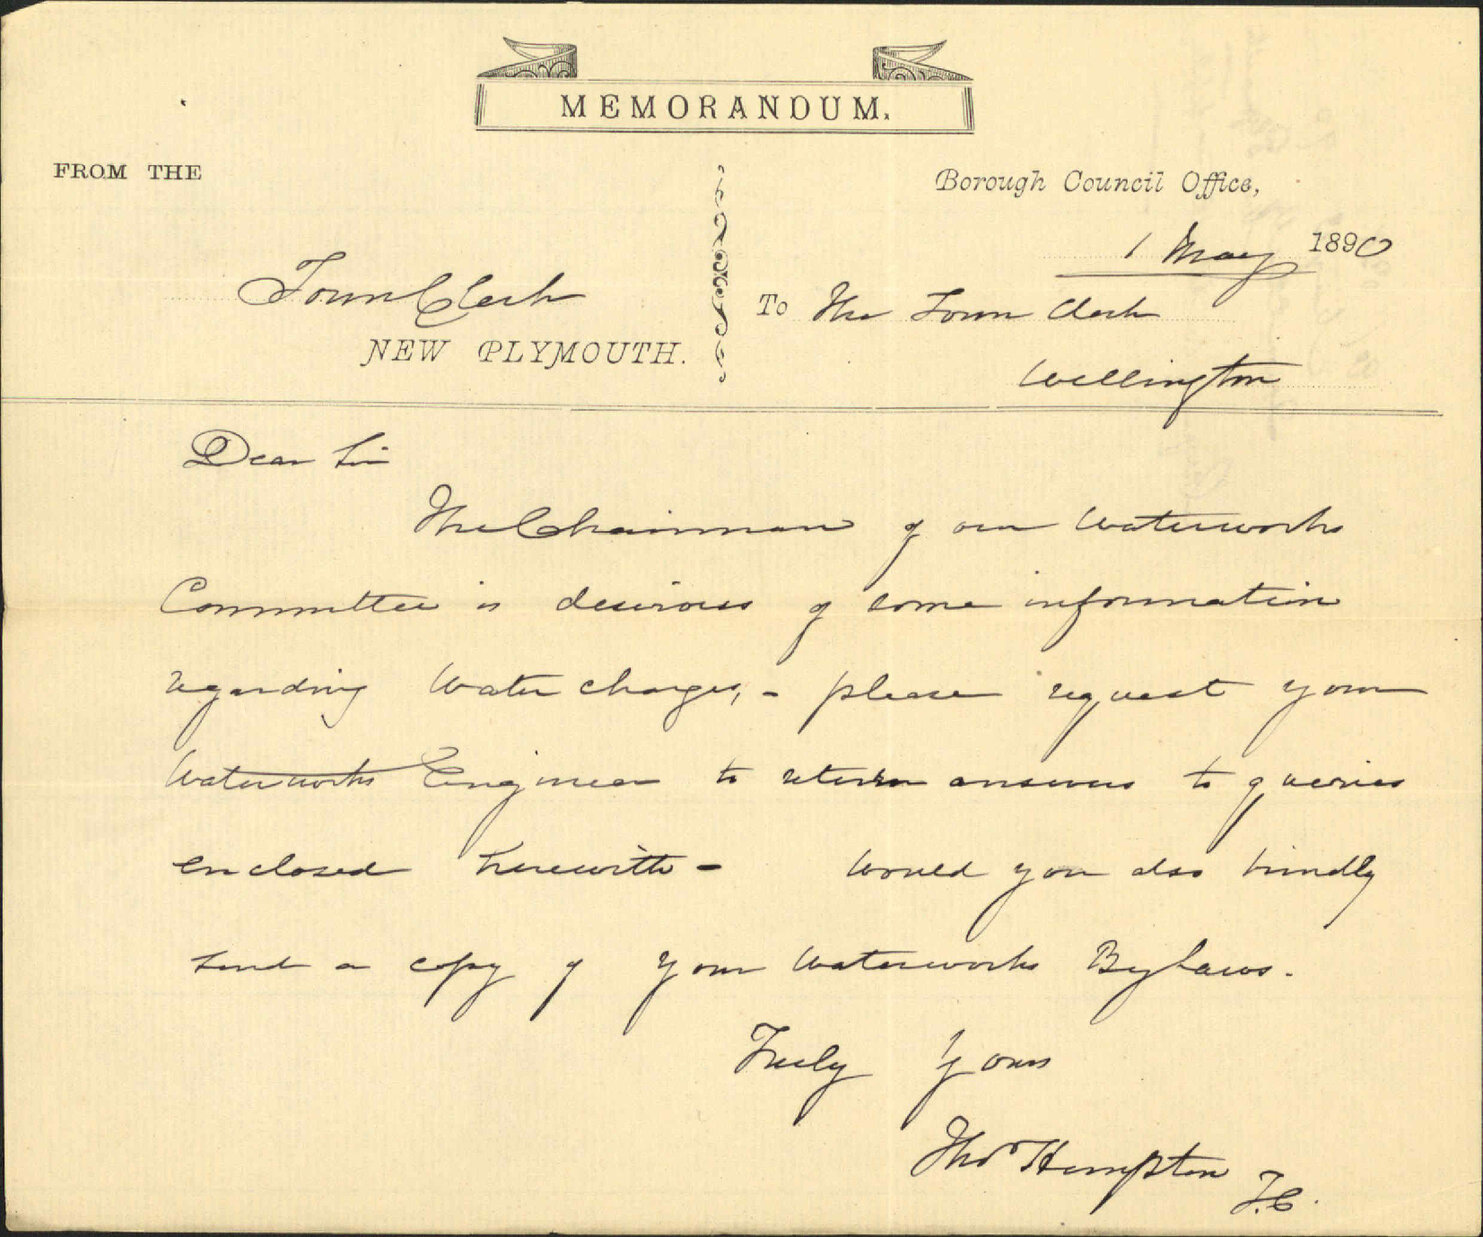 MEMORANDUM.
FROM THE
Borough Council Office,
1 May 1890
Town Clerk
NEW PLYMOUTH.
To The Town Clerk
Wellington
Dear Sir
The Chairman of our Waterworks
Committee is desirous of some information
regarding Water charges, - please request your
Waterworks Engineer to return answers to queries
enclosed herewith - Would you also kindly
send a copy of your Waterworks Bylaws.
Truly Yours
Thos Hempton
T.C.